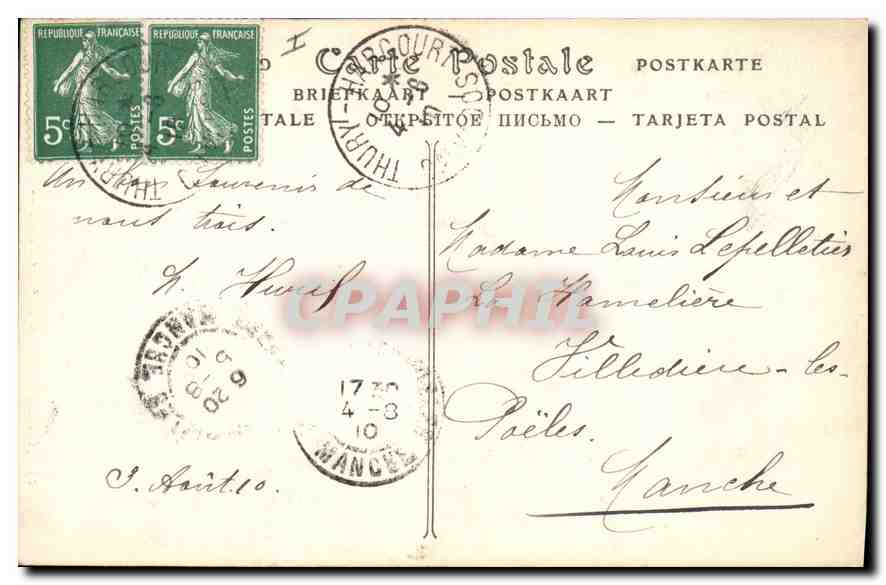 REPUBLIQUE FRANÇAISE REPUBLIQUE FRANÇAISE
5c POSTES 5c POSTES
THURY-HARCOURT
4 -8
10
Carte Postale POSTKARTE
BRIEFKAART — POSTKAART
TALE — ОТКРЫТОЕ ПИСЬМО — TARJETA POSTAL
Un bon Souvenir de
nous trois.
Monsieur et
Madame Louis Lepelletier
La Hamelière
Villedieu-les-
Poëles.
Manche
CPAPHIL
MANCHE
6 20
5 -8
10
17 30
4 -8
10
MANCHE
3. Août. 10.